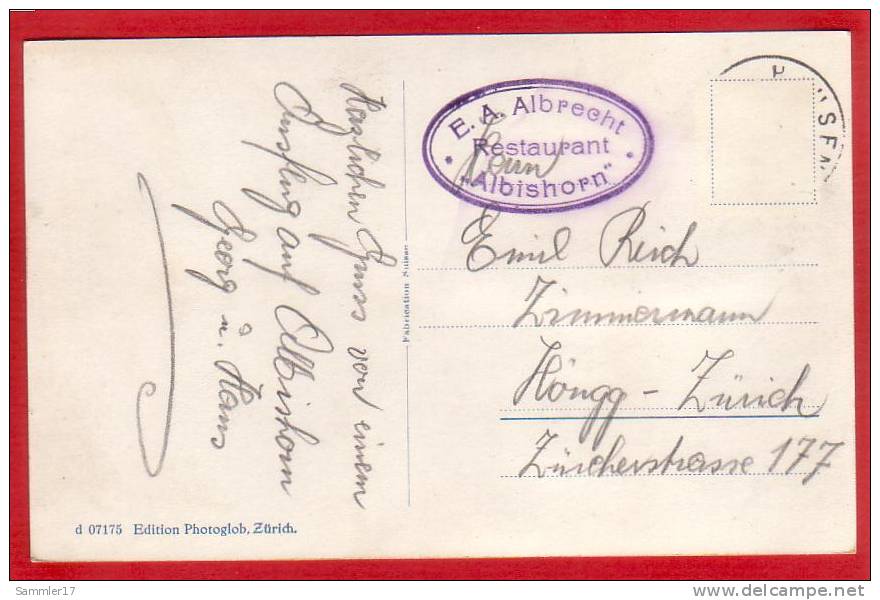 Herzlichen Gruss von einem
Ausflug auf Albishorn
Georg u. Hans
d 07175 Edition Photoglob, Zürich.
Fabrication Suisse
E. A. Albrecht
Restaurant
"Albishorn"
Herrn
Emil Reich
Zimmermann
Höngg - Zürich
Zürcherstrasse 177
Sammler17
www.delcampe.net